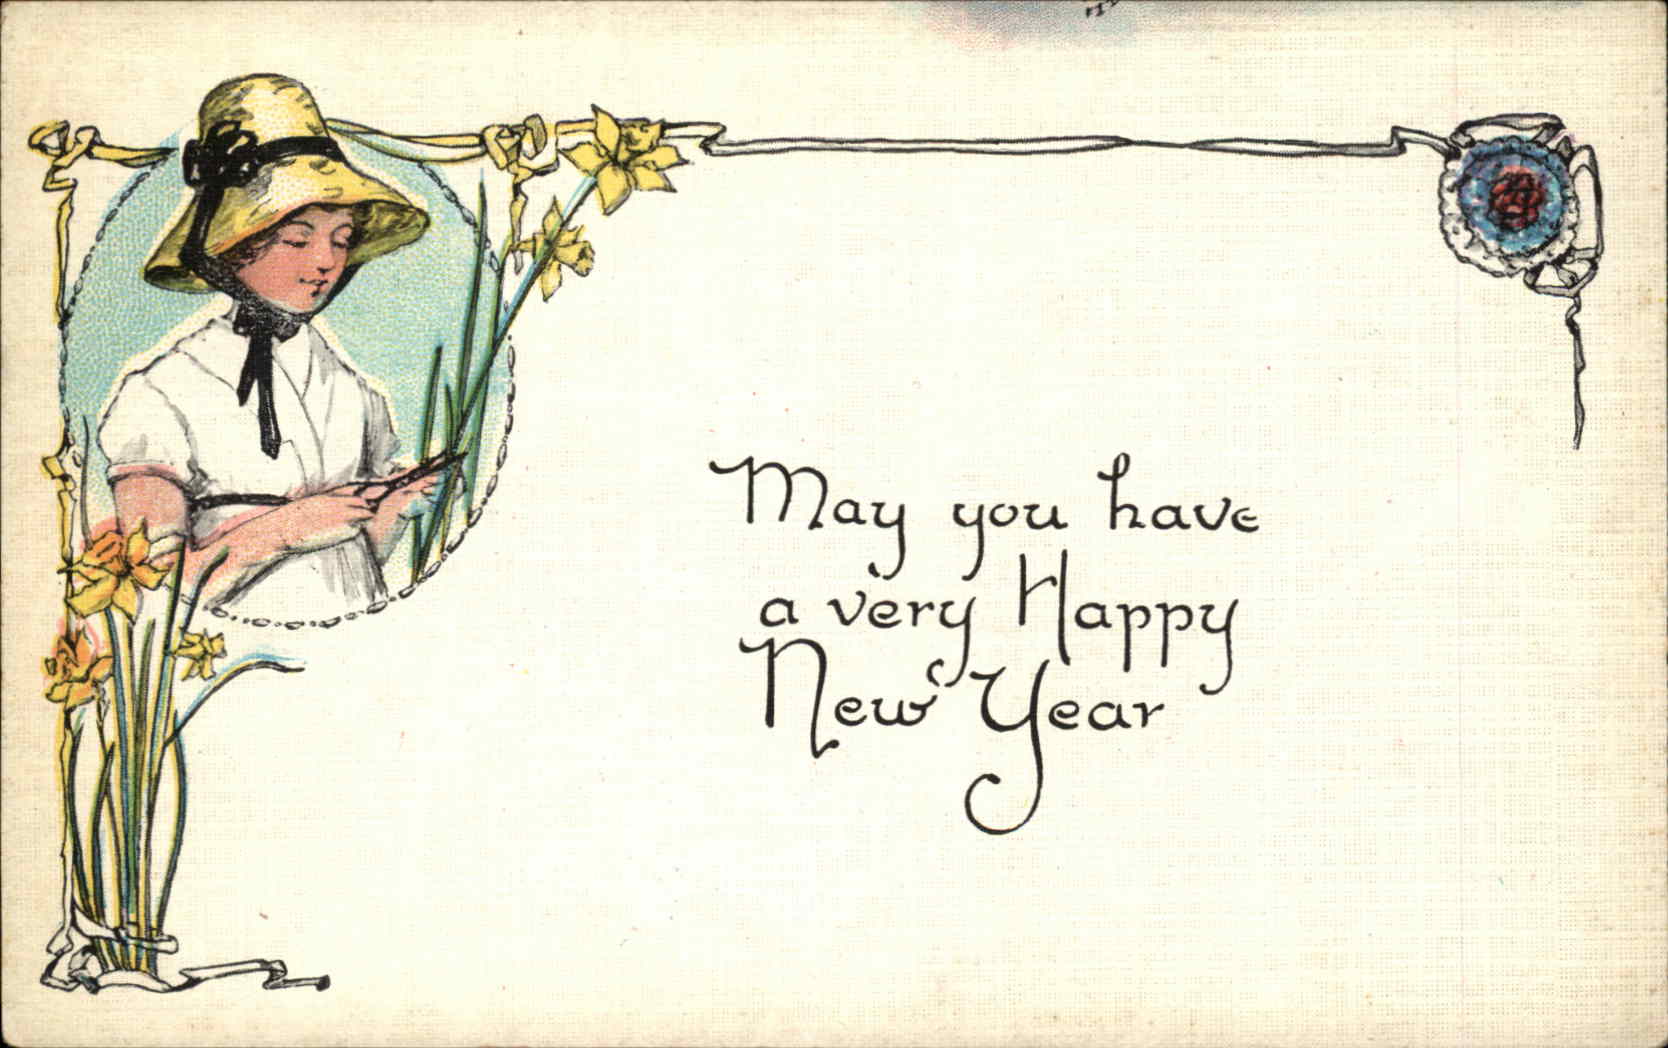 May you have
a very Happy
New Year